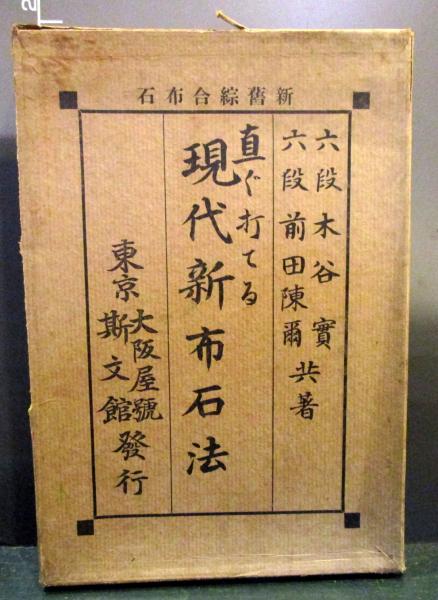 新舊綜合布石
六段木谷實
六段前田陳爾 共著
直ぐ打てる
現代新布石法
東京 大阪屋號
斯文館 發行
2